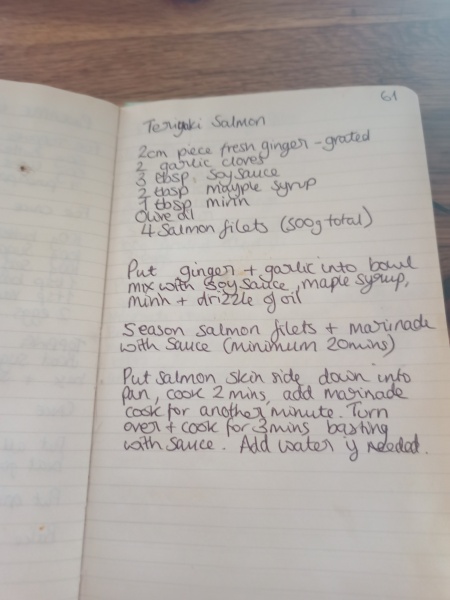 61
Teriyaki Salmon
2cm piece fresh ginger - grated
2 garlic cloves
3 tbsp soysauce
2 tbsp mayple syrup
1 tbsp mirin
Olive oil
4 Salmon filets (500g total)
Put ginger + garlic into bowl
mix with soy sauce, maple syrup,
mirin + drizzle of oil
Season salmon filets + marinade
with sauce (minimum 20mins)
Put salmon skin side down into
pan, cook 2 mins, add marinade
cook for another minute. Turn
over + cook for 3 mins basting
with sauce. Add water if needed.